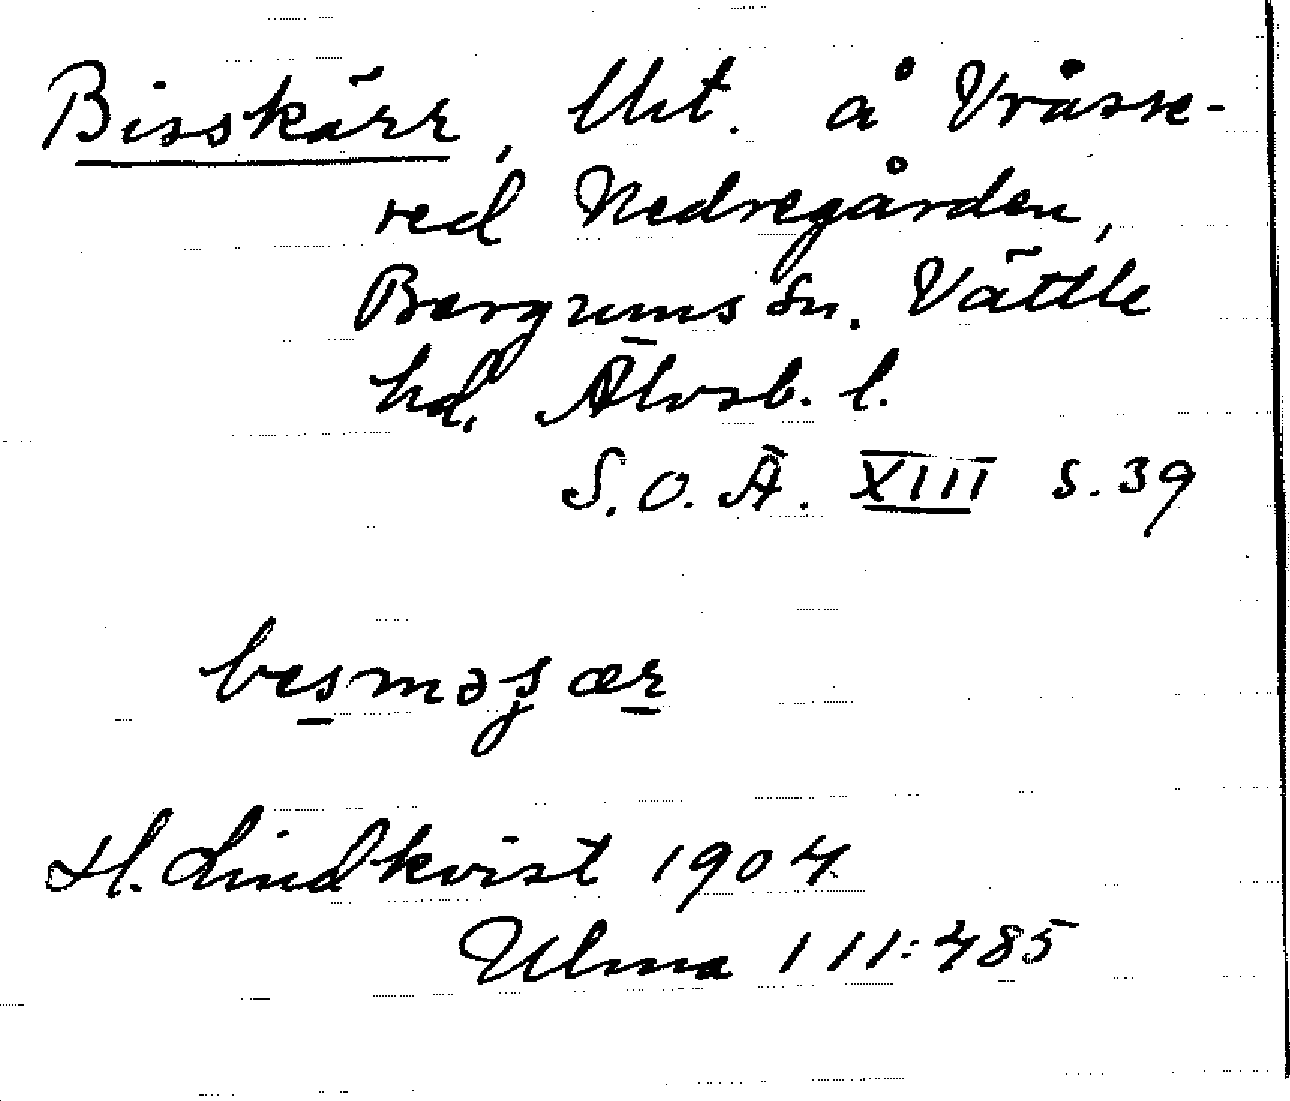 Bisskärr, Utt. å Vråsse-
red Nedregården,
Bergums sn. Vättle
hd. Älvsb. l.
S. O. Ä. XIII s. 39
besməʃær
H. Lindkvist 1904
Ulma 111:485